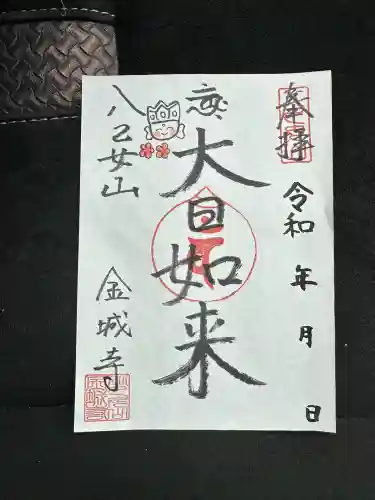 奉拝
令和 年 月 日
大日如来
八乙女山
金城寺